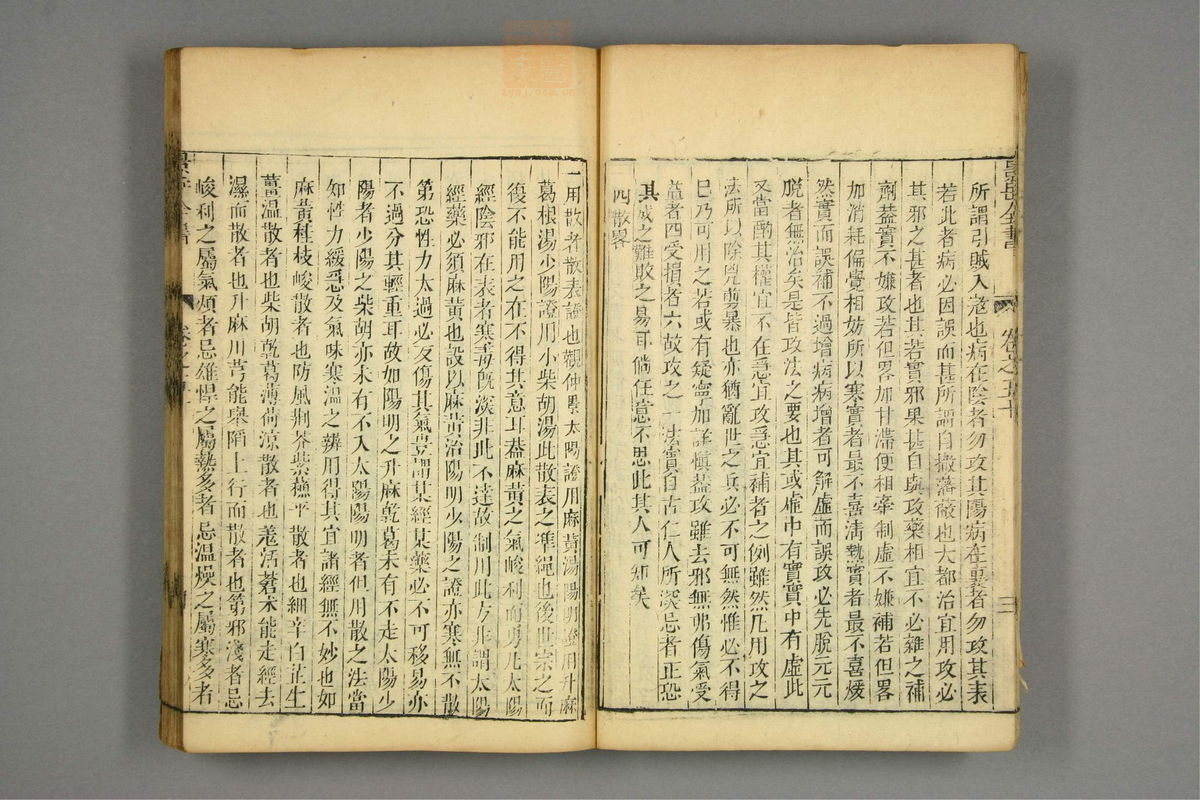 所謂引賊入寇也病在陰者勿攻其陽病在裏者勿攻其表
若此者病必因誤而甚所謂自撤藩蔽也大都治宜用攻必
其邪之甚者也其若實邪果甚自與攻藥相宜不必雜之補
劑蓋實不嫌攻若但畧加甘滯便相牽制虛不嫌補若但畧
加消耗偏覺相妨所以寒實者最不喜清熱實者最不喜煖
然實而誤補不過增病病增者可解虛而誤攻必先脫元元
脫者無治矣是皆攻法之要也其或虛中有實實中有虛此
又當酌其權宜不在急宜攻急宜補者之例雖然凡用攻之
法所以除兇剪暴也亦猶亂世之兵必不可無然惟必不得
已乃可用之若或有疑寧加詳慎蓋攻雖去邪無弗傷氣受
益者四受損者六故攻之一法實自古仁人所深忌者正恐
其成之難敗之易耳倘任意不思此其人可知矣
四散畧
一用散者散表證也觀仲景太陽證用麻黃湯陽明證用升麻
葛根湯少陽證用小柴胡湯此散表之準繩也後世宗之而
復不能用之在不得其意耳蓋麻黃之氣峻利而勇凡太陽
經陰邪在表者寒毒既深非此不達故制用此方非謂太陽
經藥必須麻黃也設以麻黃治陽明少陽之證亦寒無不散
第恐性力太過必反傷其氣豈謂某經某藥必不可移易亦
不過分其輕重耳故如陽明之升麻乾葛未有不走太陽少
陽者少陽之柴胡亦未有不入太陽陽明者但用散之法當
知性力緩急及氣味寒溫之辨用得其宜諸經無不妙也如
麻黃桂枝峻散者也防風荆芥紫蘇平散者也細辛白芷生
薑溫散者也柴胡乾葛薄荷涼散者也羌活蒼朮能走經去
濕而散者也升麻川芎能舉陷上行而散者也第邪淺者忌
峻利之屬氣煩者忌雄悍之屬熱多者忌溫燥之屬寒多者